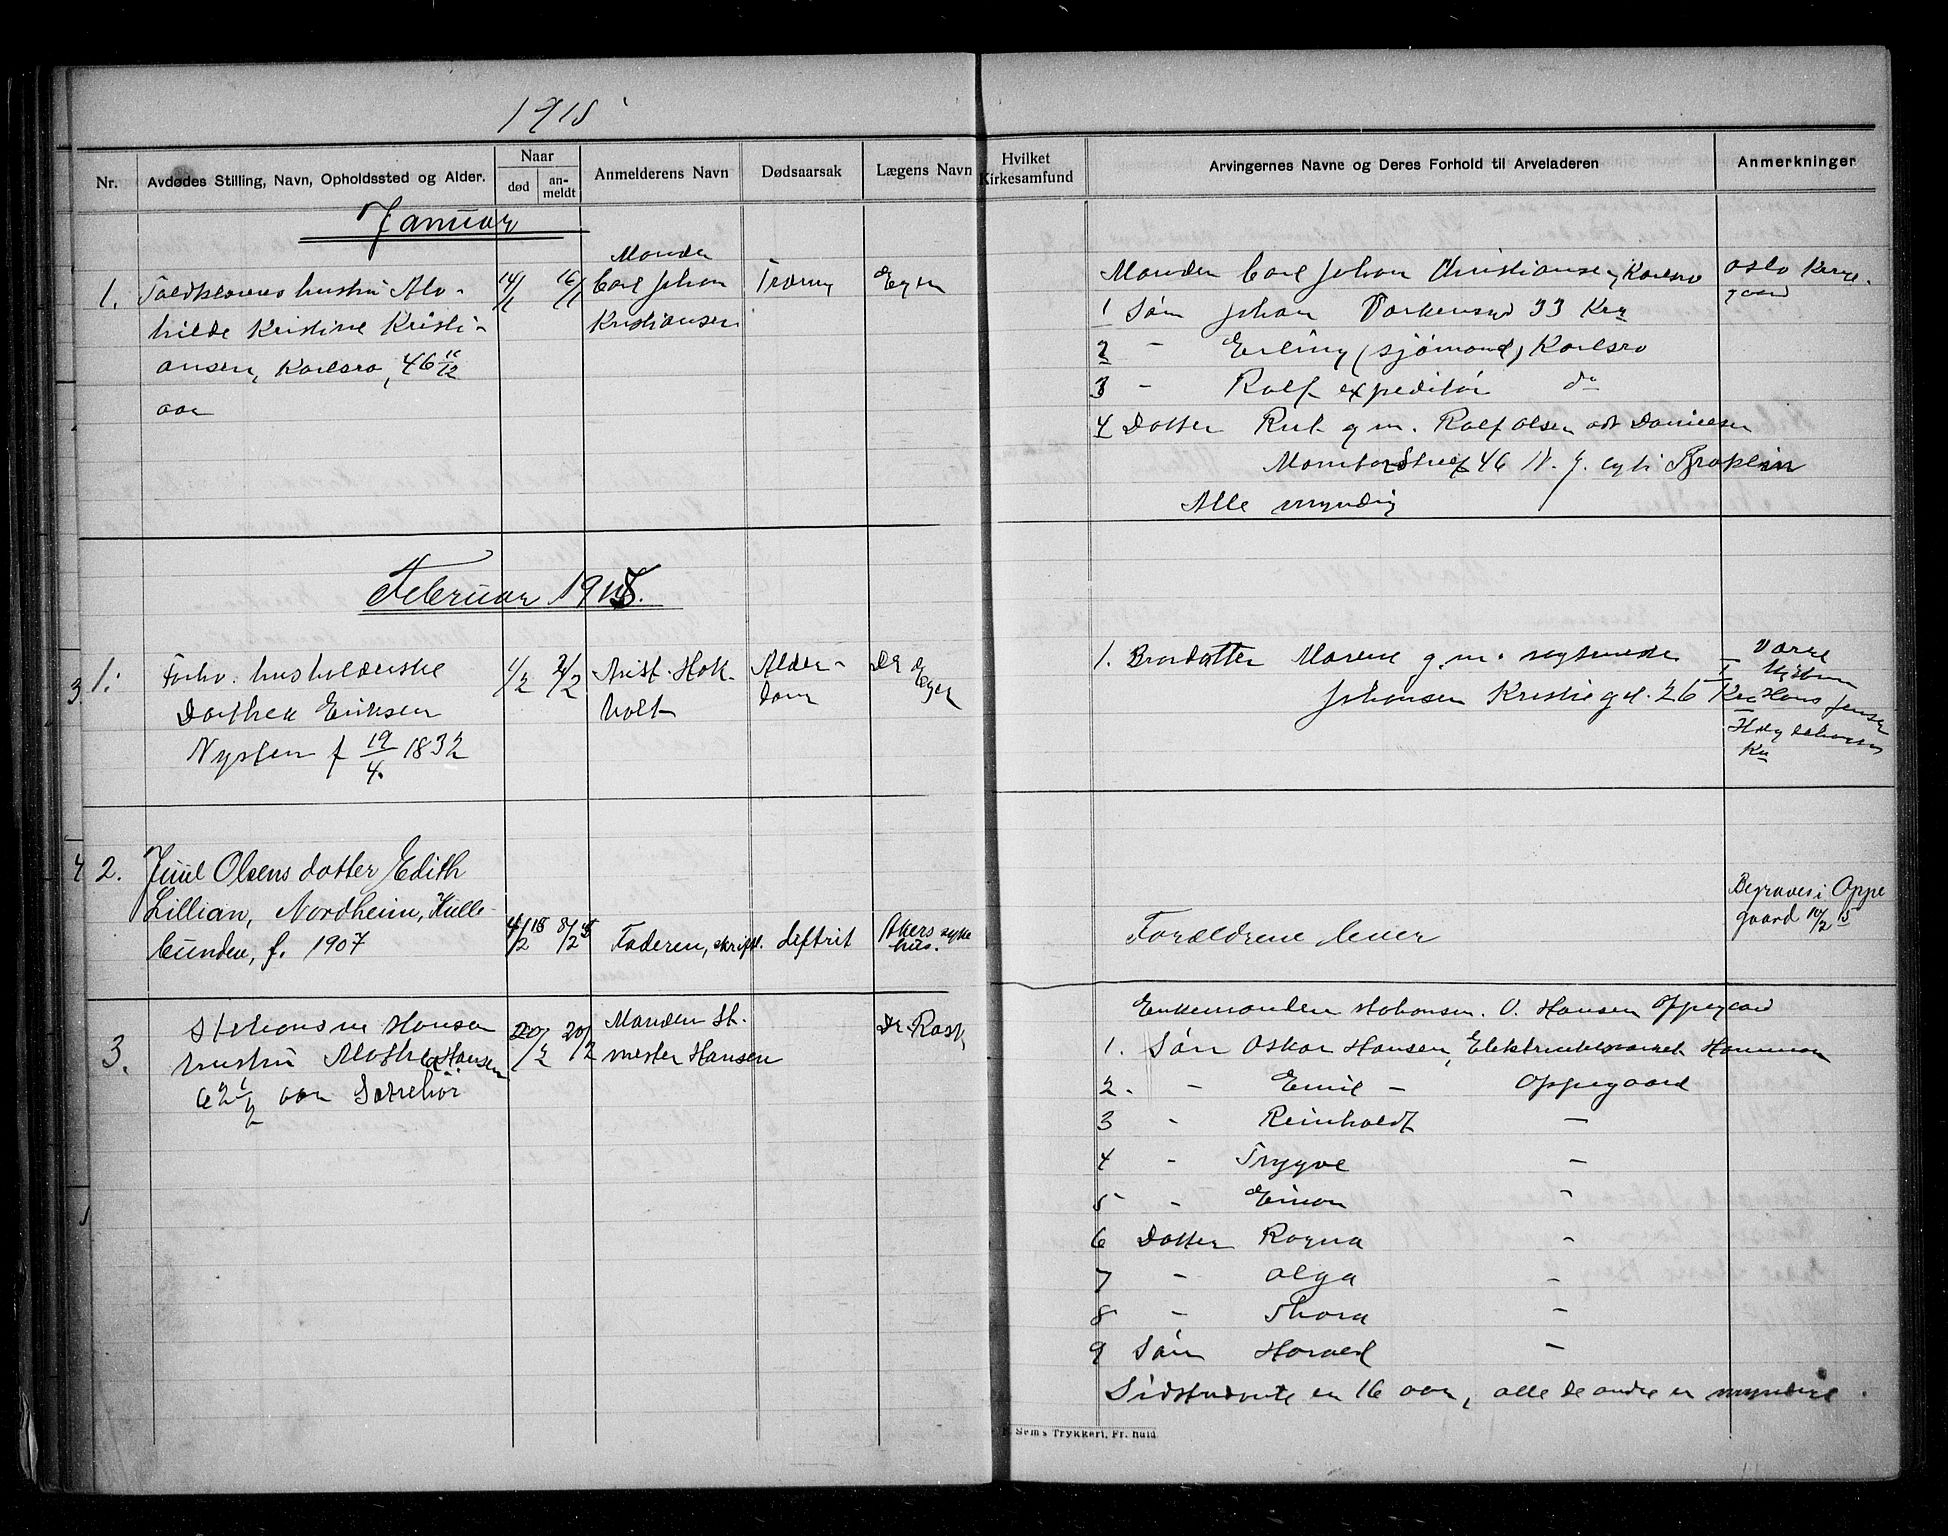 1915
Nr.
Avdødes Stilling, Navn, Opholdssted og Alder.
Naar
død
an-
meldt
Anmelderens Navn
Dødsaarsak
Lægens Navn
Hvilket
Kirkesamfund
Arvingernes Navne og Deres Forhold til Arveladeren
Anmerkninger
Januar
1. hustru Alv-
hilde Kristine Kristi-
ansen, Karlsro, 46 11/12
aar
14/1
16/1
Manden
Carl Johan
Kristiansen
Eger
Manden Carl Johan Christiansen, Karlsro
1 Søn Johan 33 Kra
2 - Erling (sjømand) Karlsro
3 - Rolf expeditør do
4 Datter Rut g m. Rolf Olsen adr Danielsen
46 N. J.
Alle myndig
Oslo Kirke-
gaard
Februar 1915.
3 1. Forhv. husholderske
Dorthea Eriksen
Nysten f 19/4. 1832
1/2
2/2
Holt
Alder-
dom
Dr Eger
1. Brordatter Marene g.m.
Johansen Kristie gt. 26 Kra
Hans Jensen
Kra
4 2. Juul Olsens datter Edith
Lillian, Nordheim, Kulle-
bunden, f. 1907
4/2 15
8/2 15
Faderen, skriftl.
diftrit
Akers syke
hus.
Forældrene lever
Begraves i Oppe
gaard 10/2 15
3. Hansen
hustru Mathea Hansen
62 1/2 aar Sætrehør
20/2
20/2
Manden St.
mester Hansen
Dr. Rask
Enkemanden O. Hansen Oppegaard
1. Søn Oskar Hansen,
2. - Emil - Oppegaard
3 - Reinholdt -
4 - Trygve -
5 - Einar -
6 Datter Ragna -
7 - Olga -
8 - Thora -
9 Søn Harald -
Sidstnævnte er 16 aar, alle de andre er myndige.
Sem's Trykkeri, Fr.hald